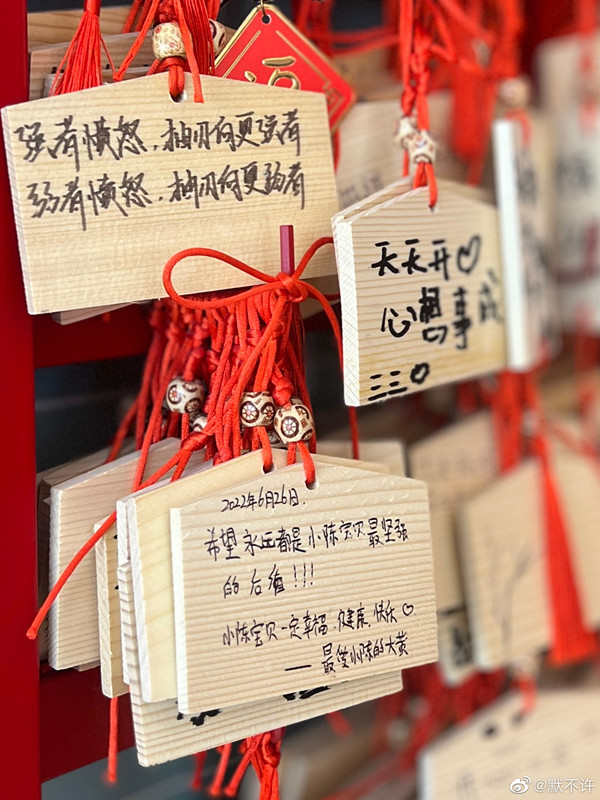 强者愤怒，抽刃向更强者
弱者愤怒，抽刃向更弱者
天天开♡
心想事成
三三♡
2022年6月26日.
希望永远都是小陈宝贝最坚强
的后盾！！！
小陈宝贝一定幸福、健康、快乐♡
——最爱小陈的大黄
@默不许